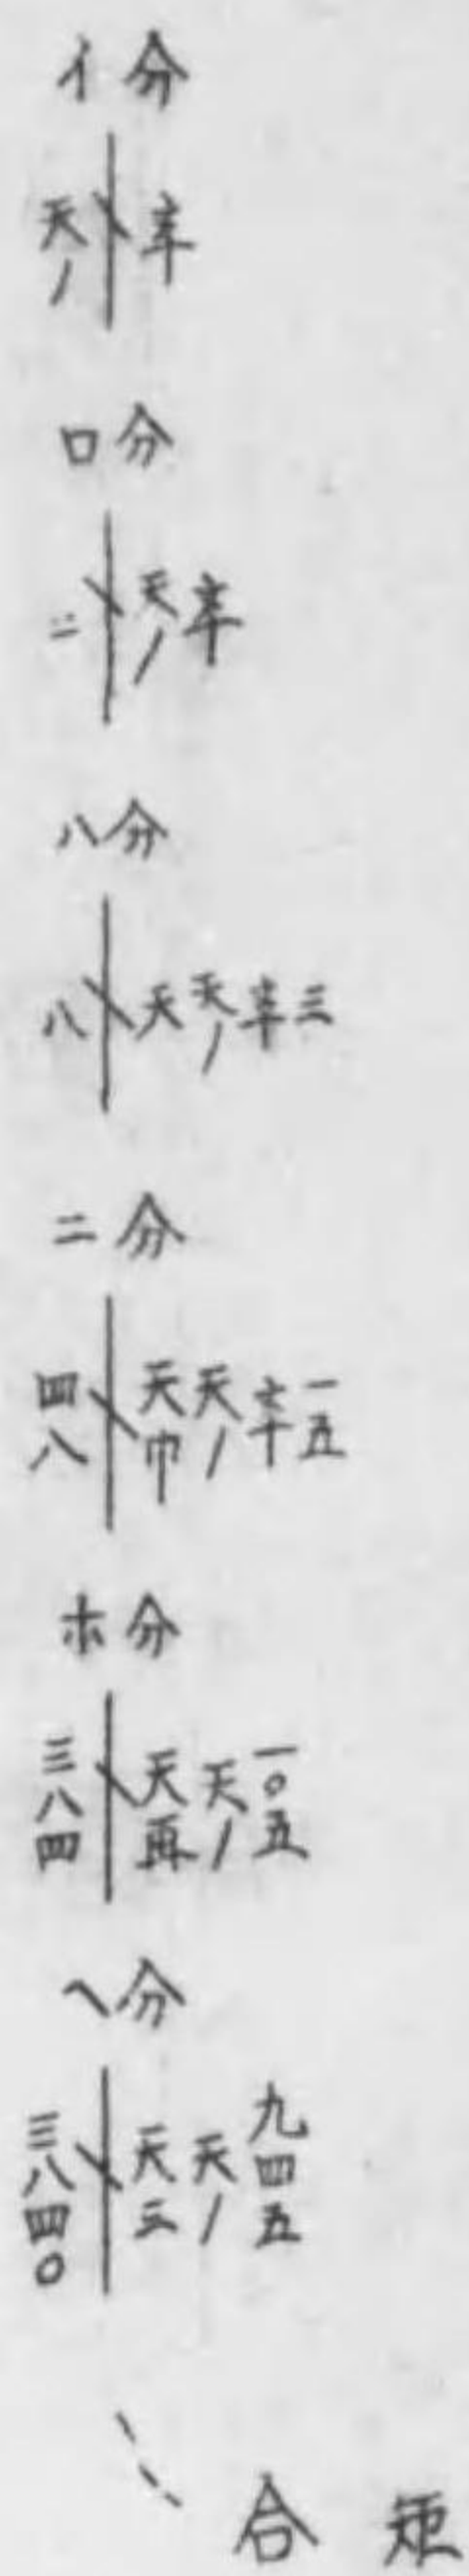 イ分
天ノ 率
ロ分
二 天ノ 率
ハ分
八 天 天ノ 率 三
ニ分
四八 天巾 天ノ 率 一五
ホ分
三八四 天再 天ノ 一〇五
ヘ分
三八四〇 天三 天ノ 九四五
合矩